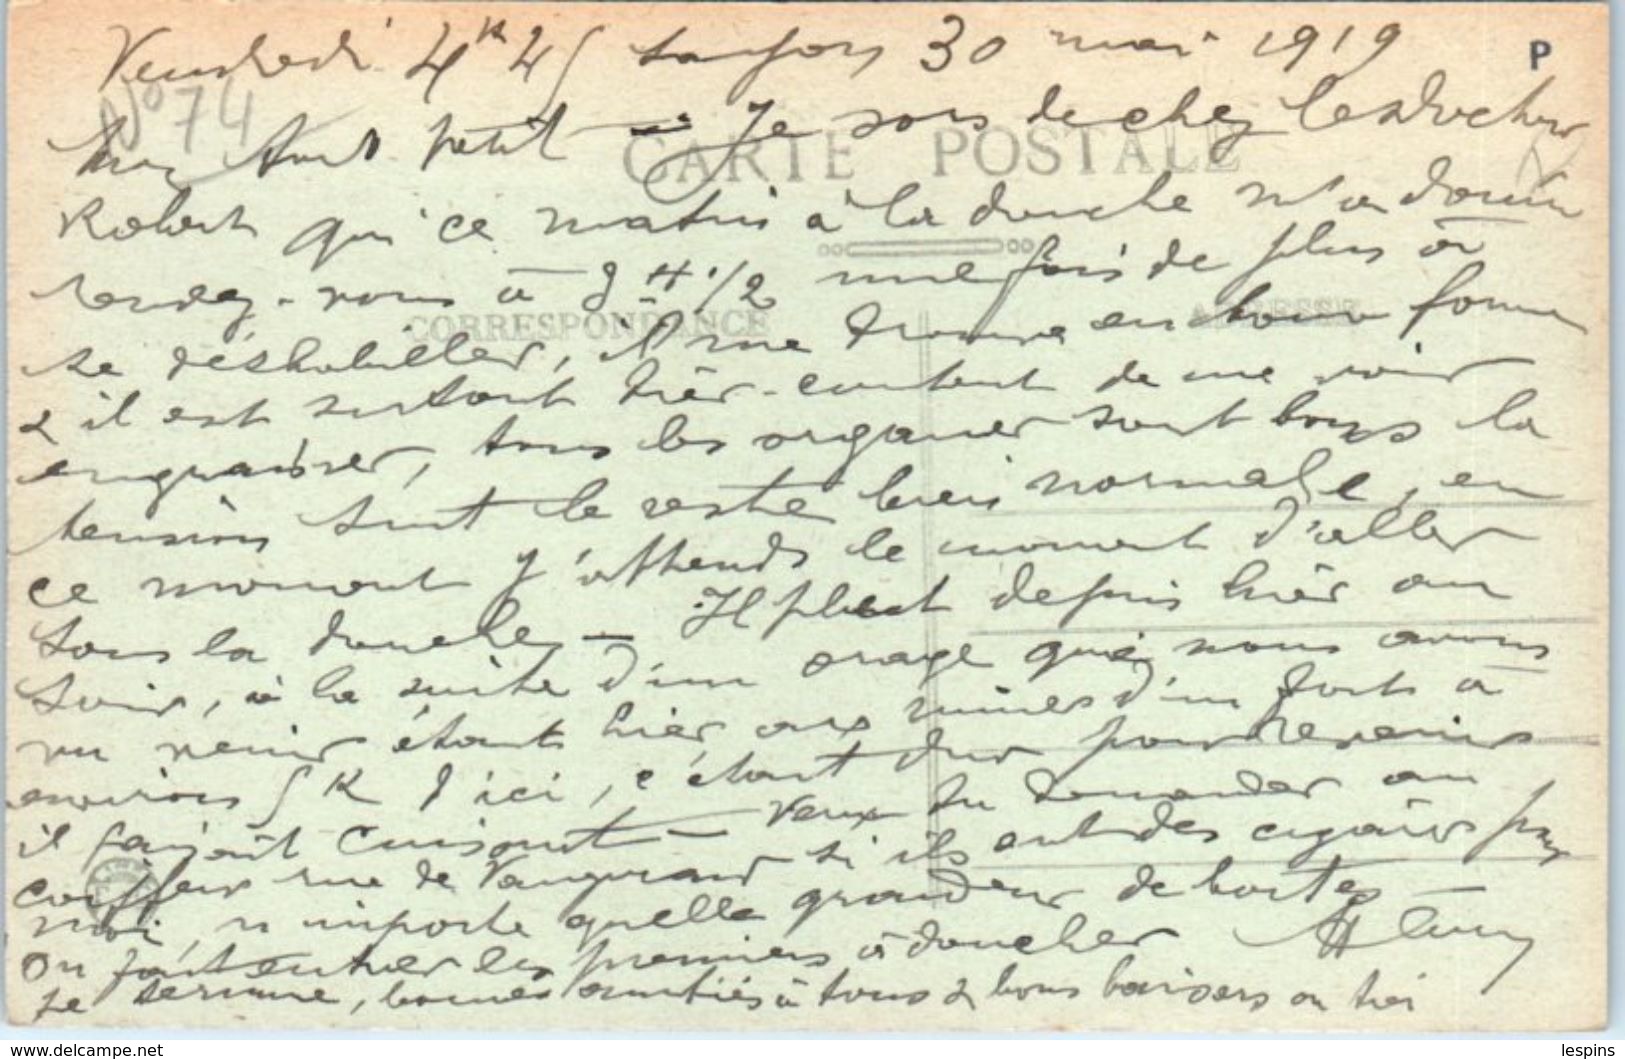 Vendredi 4h 45 30 mai 1919
P
N° 74
Mon petit — Je sors de chez le docteur
CARTE POSTALE
Robert qui ce matin à la douche m'a donné
rendez-vous à 3 H 1/2 une fois de plus à
CORRESPONDANCE ADRESSE
se déshabiller, il me trouve en bonne forme
& il est surtout très-content de me voir
engraisser, tous les organes sont bons la
tension surtout le reste bien normale, en
ce moment j'attends le moment d'aller
sous la douche — Il pleut depuis hier au
soir, à la suite d'un orage que nous avons
vu venir étant hier aux ruines d'un fort à
environ 5 K d'ici, c'était dur pour revenir
il faisait cuisant — Veux tu demander au
coiffeur rue de Vaugirard si ils ont des cigares pour
moi, n'importe quelle grandeur de boites —
On fait entrer les premiers à doucher
je termine, bonnes amitiés à tous & bons baisers à toi
lespins
www.delcampe.net